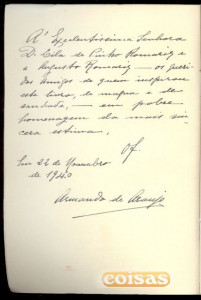 A' Excelentissima Senhora
D. Lila de Pinho Romariz e
a Augusto Romariz — os queri-
dos amigos de quem inspiram
este livro, de magua e de
saudade, — em pobre
homenagem da mais sin-
cera estima.
Of.
Em 22 de Novembro
de 1940
Armando de Araujo
coisas